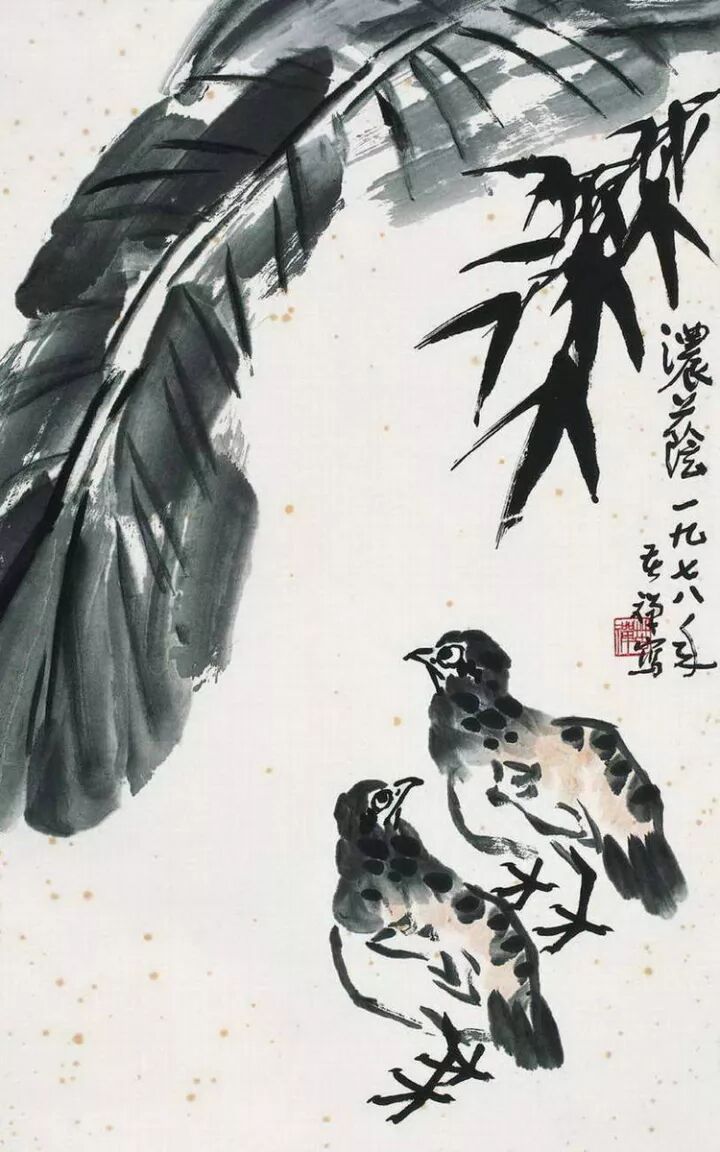 濃蔭一九七八年
苦禪寫